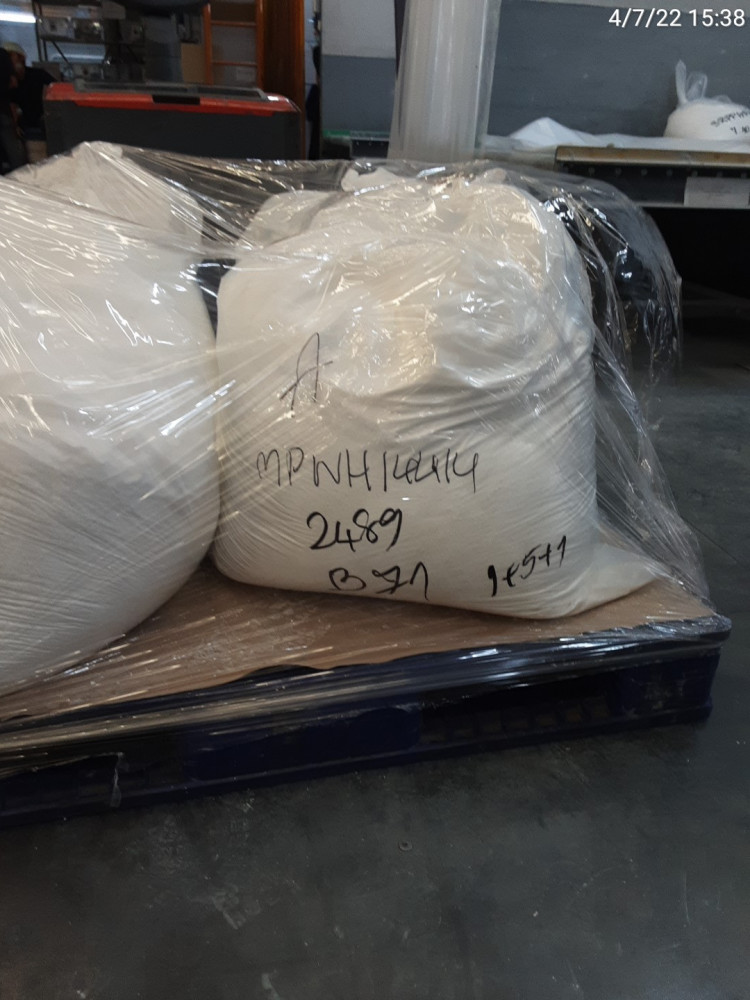 4/7/22 15:38
A
MPWH14414
2489
B71 1+5+1